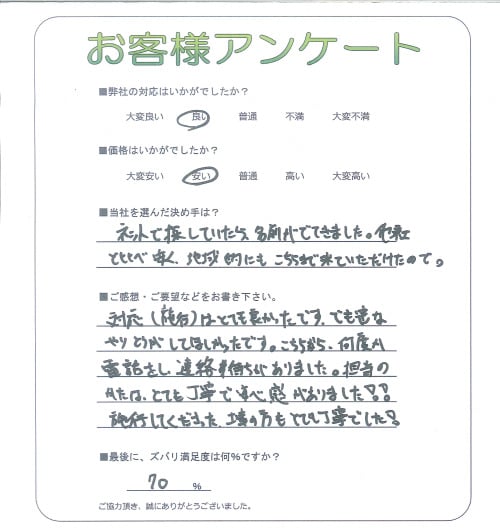 お客様アンケート
■弊社の対応はいかがでしたか？
大変良い 良い 普通 不満 大変不満
■価格はいかがでしたか？
大変安い 安い 普通 高い 大変高い
■当社を選んだ決め手は？
ネットで探していたら、名前がでてきました。他社
とくらべ安く、地域的にもこちらまで来ていただけたので。
■ご感想・ご要望などをお書き下さい。
対応(施行)はとても良かったです。でも
やりとりがしてほしかったです。こちらから、何度か
電話をし、連絡待ちがありました。担当の
方は、とても丁寧で安心感がありました!!
施行してくださった、工事の方もとても丁寧でした
■最後に、ズバリ満足度は何%ですか？
70 %
ご協力頂き、誠にありがとうございました。